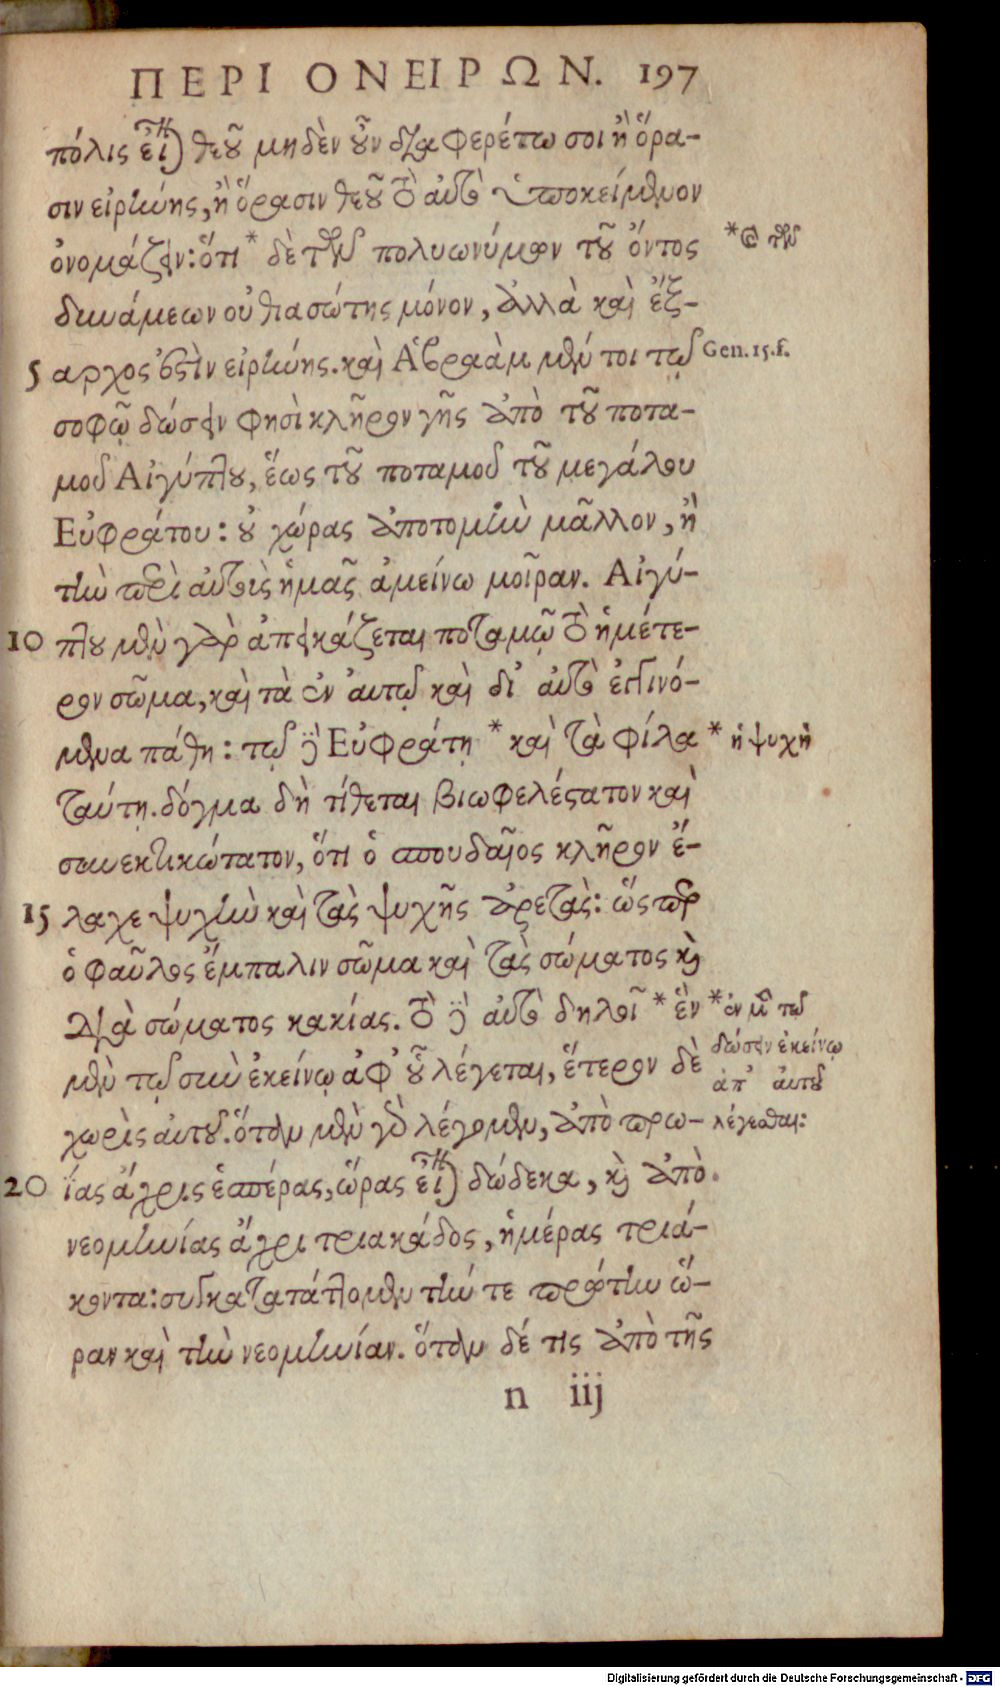 ΠΕΡΙ ΟΝΕΙΡΩΝ. 197
πόλις εἴη θεοῦ μηδὲν οὖν διαφερέτω σοι ἢ ὅρα-
σιν εἰρήνης, ἢ ὅρασιν θεοῦ τὸ αὐτὸ ὑποκείμενον
ὀνομάζειν: ὅτι * δὲ τῶν πολυωνύμων τοῦ ὄντος
* ὁ τῶν
δυνάμεων οὐ θιασώτης μόνον, ἀλλὰ καὶ ἔξ-
5 αρχος ἐστὶν εἰρήνης. καὶ Ἀβραὰμ μέν τοι τῷ
Gen. 15.f.
σοφῷ δώσειν φησὶ κλῆρον γῆς ἀπὸ τοῦ ποτα-
μοῦ Αἰγύπτου, ἕως τοῦ ποταμοῦ τοῦ μεγάλου
Εὐφράτου: οὐ χώρας ἀποτομὴν μᾶλλον, ἢ
τὴν περὶ αὐτοὺς ἡμᾶς ἀμείνω μοῖραν. Αἰγύ-
10 πτου μὲν γὰρ ἀπεικάζεται ποταμῷ τὸ ἡμέτε-
ρον σῶμα, καὶ τὰ ἐν αυτῷ καὶ δι' αὐτὸ ἐγγινό-
μενα πάθη: τῷ δὲ Εὐφράτῃ * καὶ τὰ φίλα
* ἡ ψυχὴ
ταύτῃ. δόγμα δὴ τίθεται βιωφελέστατον καὶ
συνεκτικώτατον, ὅτι ὁ σπουδαῖος κλῆρον ἔ-
15 λαχε ψυχὴν καὶ τὰς ψυχῆς ἀρετάς: ὥσπερ
ὁ φαῦλος ἔμπαλιν σῶμα καὶ τὰς σώματος καὶ
διὰ σώματος κακίας. τὸ δὲ αὐτὸ δηλοῖ * ἓν
* ἐν μὲν τῷ
δώσειν ἐκείνῳ
ἀπ' αυτοῦ
λέγεσθαι:
μὲν τῷ σὺν ἐκείνῳ ἀφ' οὗ λέγεται, ἕτερον δὲ
χωρὶς αυτοῦ. ὅταν μὲν γὰρ λέγομεν, ἀπὸ πρω-
20 ΐας ἄχρις ἑσπέρας, ὥρας εἴη δώδεκα, καὶ ἀπὸ
νεομηνίας ἄχρι τριακάδος, ἡμέρας τριά-
κοντα: συγκατατάττομεν τήν τε πρώτην ὥ-
ραν καὶ τὴν νεομηνίαν. ὅταν δέ τις ἀπὸ τῆς
n iij
Digitalisierung gefördert durch die Deutsche Forschungsgemeinschaft - DFG